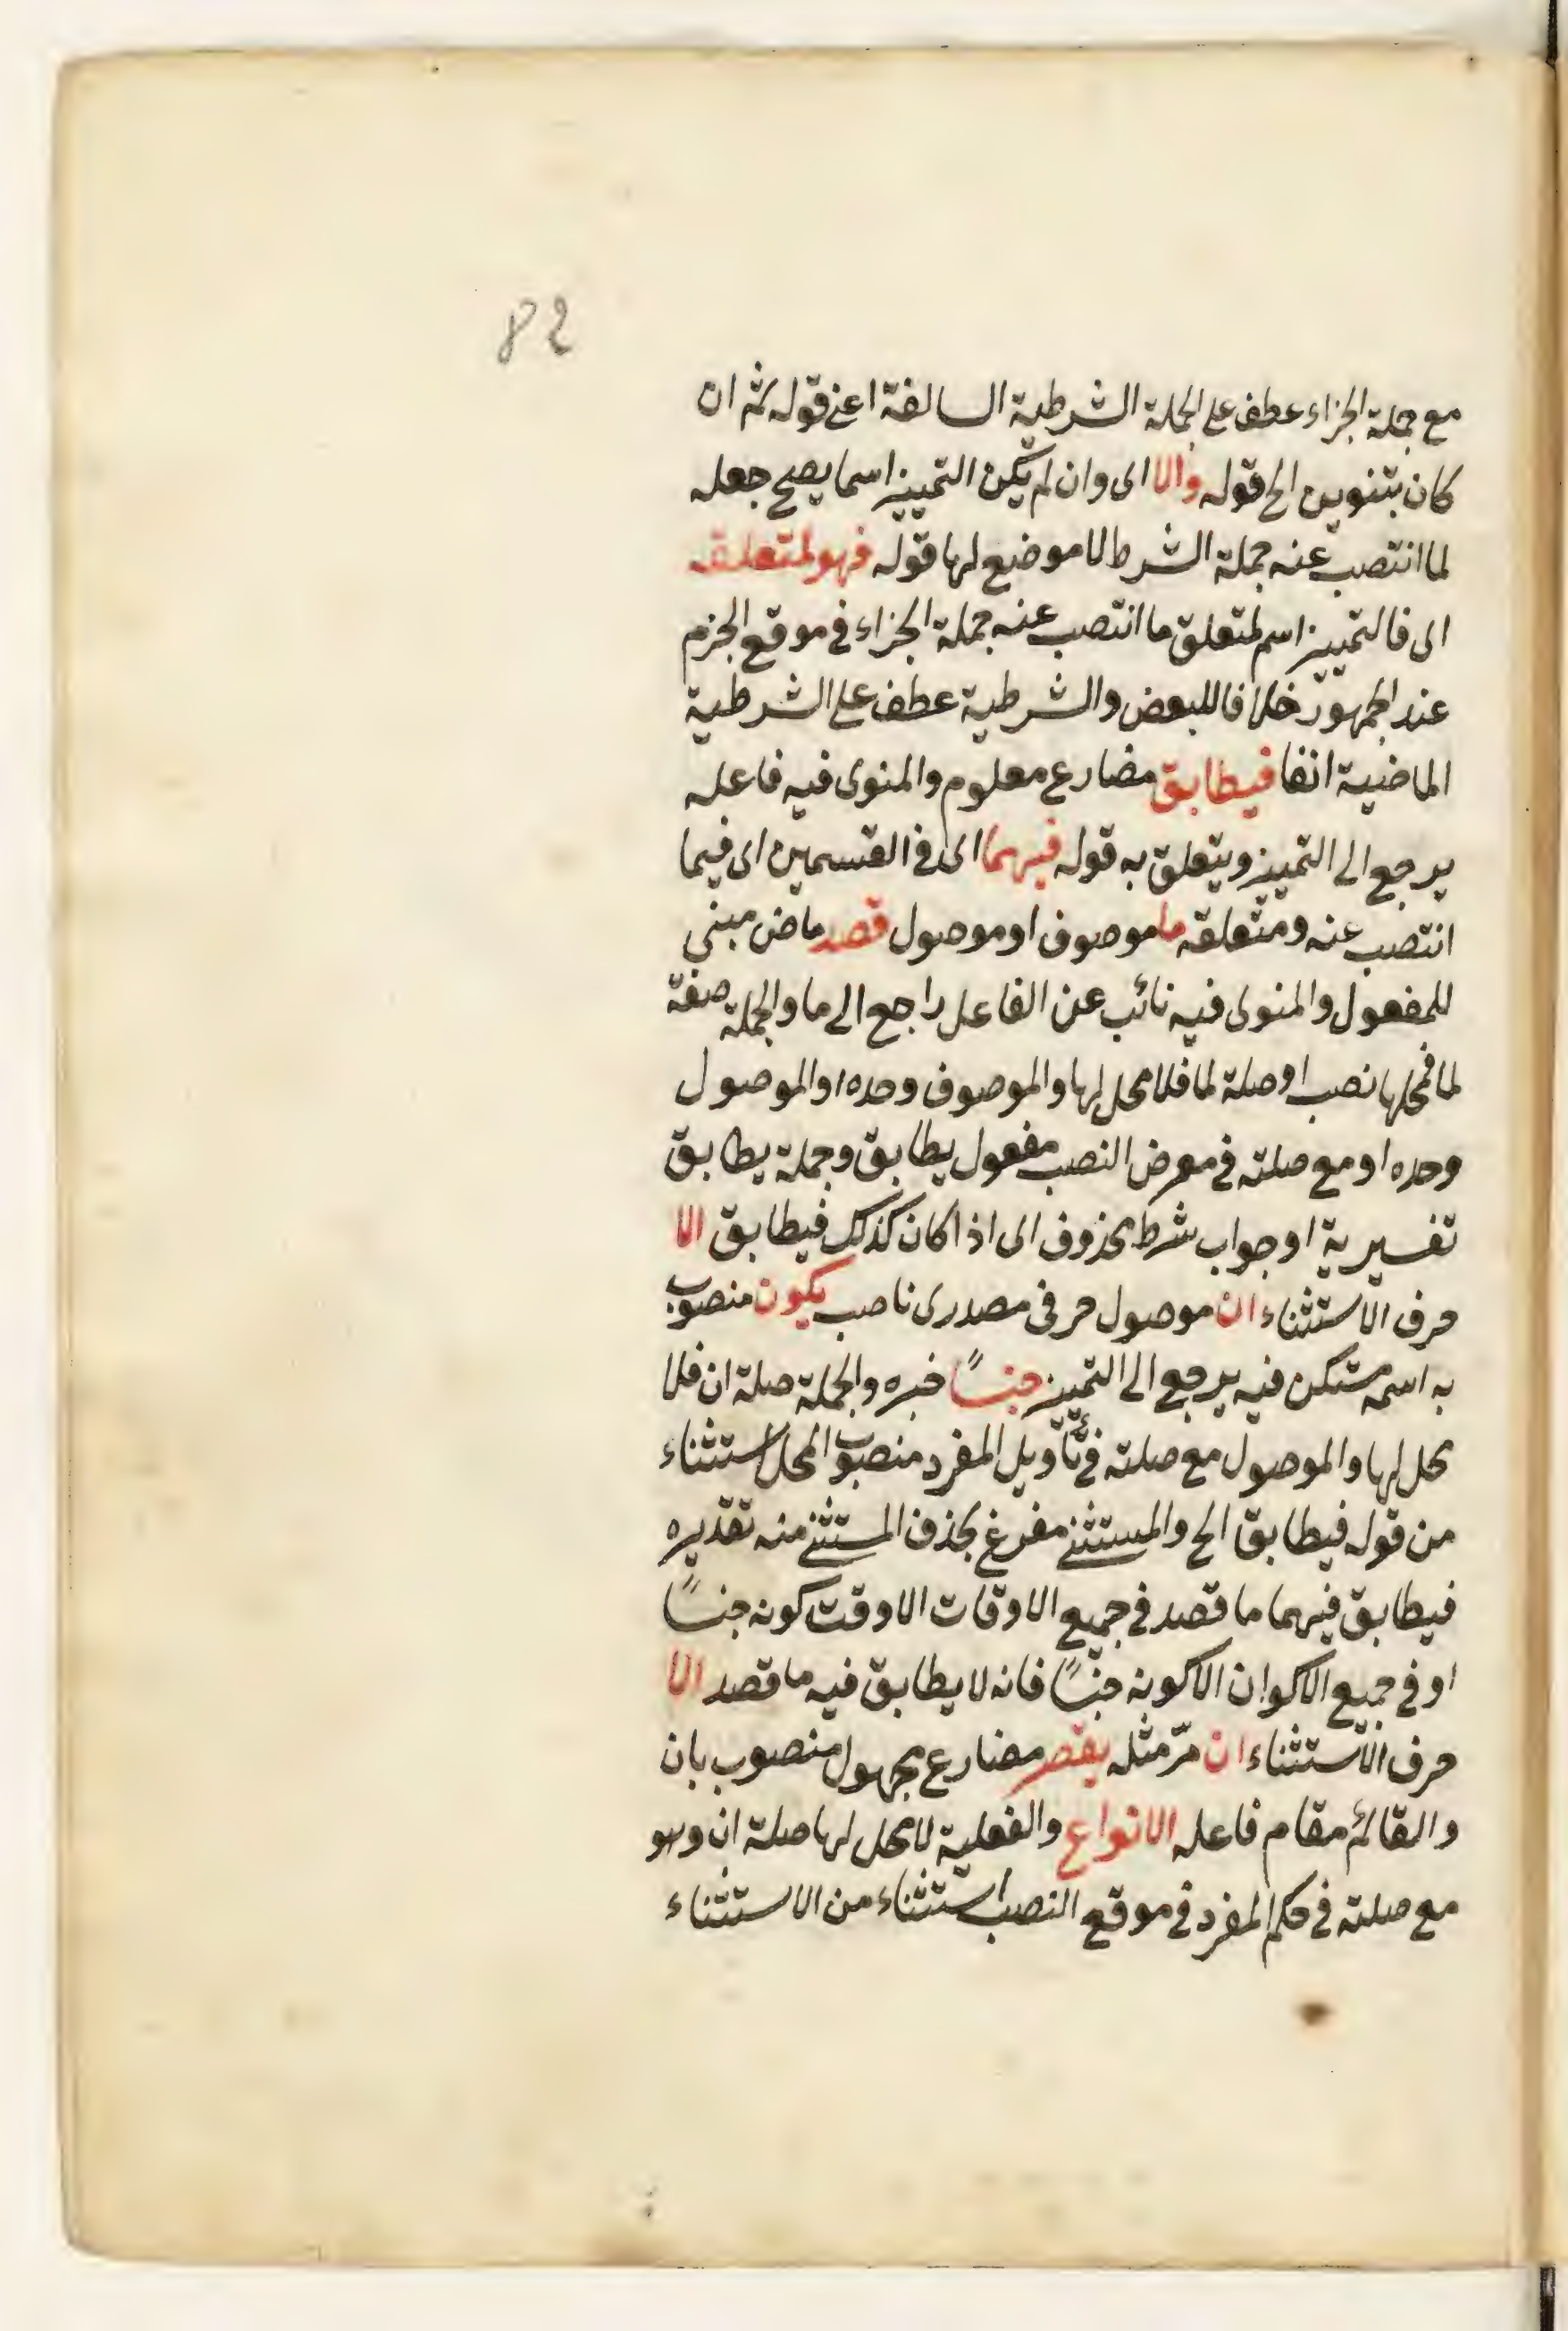 82
مع جملة الجزاء عطف على الجملة الشرطية السالفة اعنى قوله ثم ان
كان بتنوين الخ قوله والا اى وان لم يكن التمييز اسما يصح جعله
لما انتصب عنه جملة الشرط لا موضع لها قوله فهو لمتعلقه
اى فالتمييز اسم لمتعلق ما انتصب عنه جملة الجزاء فى موقع الجزم
عند الجمهور خلافا للبعض والشرطية عطف على الشرطية
الماضية انفا فيطابق مضارع معلوم والمنوى فيه فاعله
يرجع الى التمييز ويتعلق به قوله فيهما اى فى القسمين اى فيما
انتصب عنه ومتعلقه ما موصوف او موصول قصد ماض مبنى
للمفعول والمنوى فيه نائب عن الفاعل راجع الى ما والجملة صفة
لما فمحلها نصب او صلة لما فلا محل لها والموصوف وحده او الموصول
وحده او مع صلته فى معرض النصب مفعول يطابق وجملة يطابق
تفسيرية او جواب شرط محذوف اى اذا كان كذلك فيطابق الا
حرف الاستثناء ان موصول حرفى مصدرى ناصب يكون منصوب
به اسمه مستكن فيه يرجع الى التمييز جنسًا خبره والجملة صلة ان فلا
محل لها والموصول مع صلته فى تأويل المفرد منصوب المحل استثناء
من قوله فيطابق الخ والمستثنى مفرغ بحذف المستثنى منه تقديره
فيطابق فيهما ما قصد فى جميع الاوقات الا وقت كونه جنسًا
او فى جميع الاكوان الا كونه جنسًا فانه لا يطابق فيه ما قصد الا
حرف الاستثناء ان مرّ مثله يقصد مضارع مجهول منصوب بان
والقائم مقام فاعله الانواع والفعلية لا محل لها صلة ان وهو
مع صلته فى حكم المفرد فى موقع النصب استثناء من الاستثناء